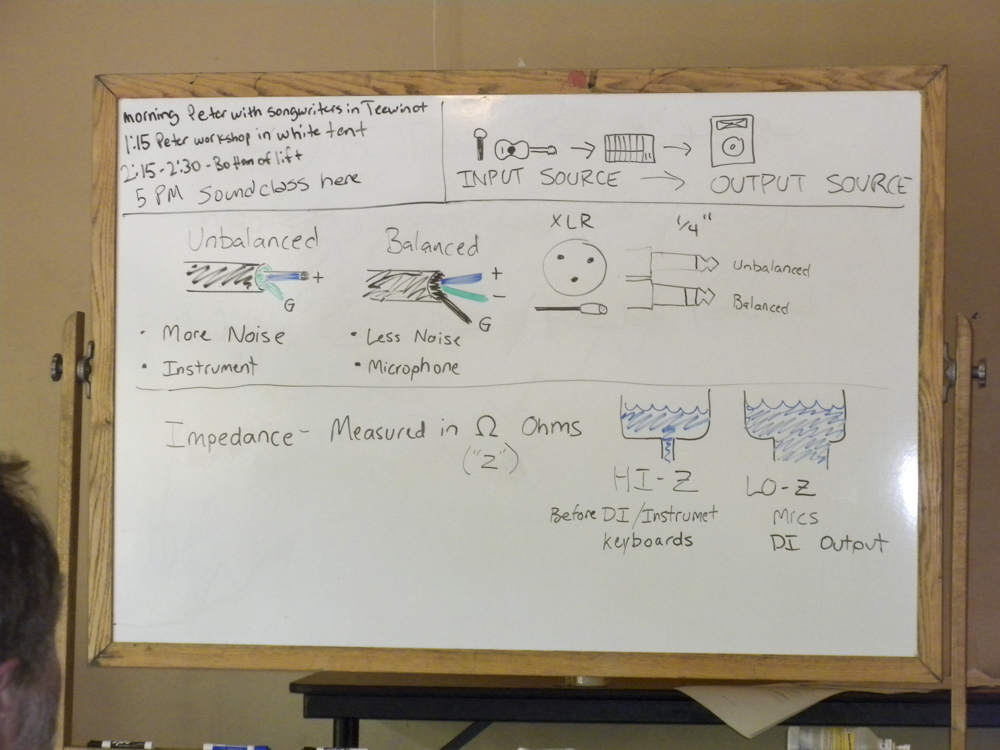 morning Peter with songwriters in Teewinot
1:15 Peter workshop in white tent
2:15-2:30 - Bottom of lift
5 PM Sound class here
INPUT SOURCE → OUTPUT SOURCE
Unbalanced
+
G
• More Noise
• Instrument
Balanced
+
-
G
• Less Noise
• Microphone
XLR
1/4"
Unbalanced
Balanced
Impedance - Measured in Ω Ohms
("Z")
HI-Z
Before DI/Instrumet
keyboards
LO-Z
Mics
DI Output